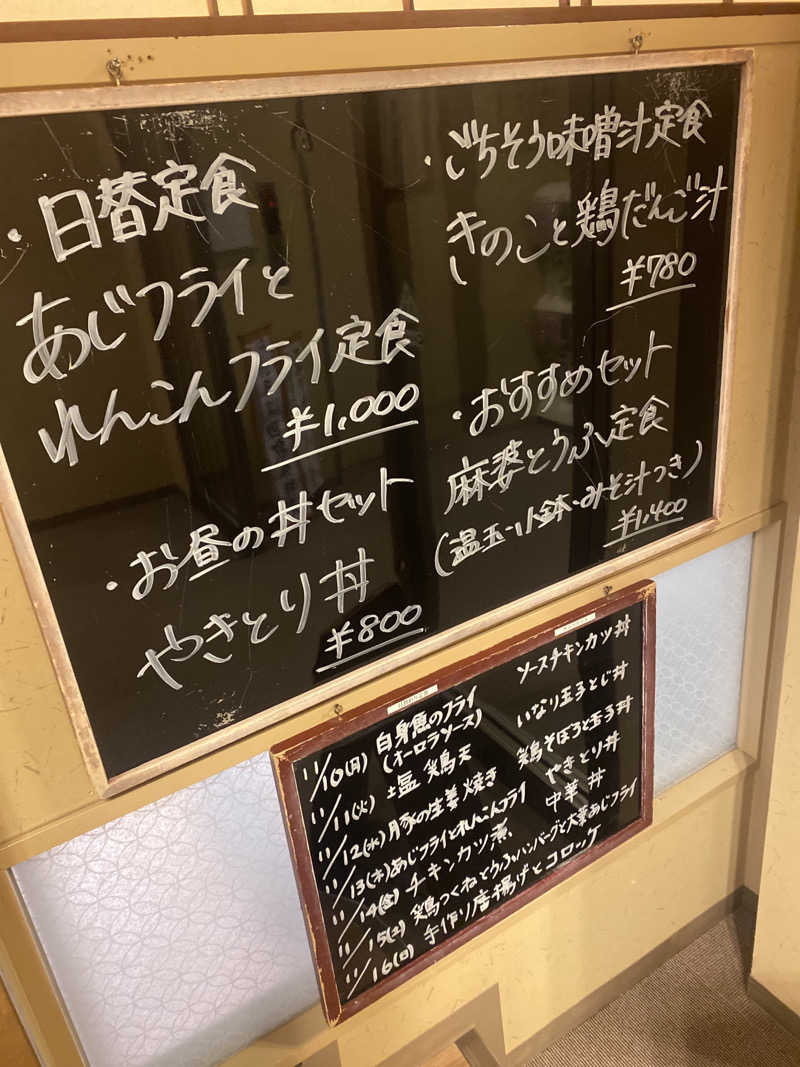 ・日替定食
あじフライと
れんこんフライ定食
¥1,000
・お昼の丼セット
やきとり丼
¥800
・ごちそう味噌汁定食
きのこと鶏だんご汁
¥780
・おすすめセット
麻婆とうふ定食
(温玉・小鉢・みそ汁つき)
¥1,400
11/10(月) 白身魚のフライ ソースチキンカツ丼
(オーロラソース)
11/11(火) 塩鶏天 いなり玉子とじ丼
11/12(水) 豚の生姜焼き 鶏そぼろと玉子丼
11/13(木) あじフライとれんこんフライ やきとり丼
11/14(金) チキンカツ煮 中華丼
11/15(土) 鶏つくねとうふハンバーグと大葉あじフライ
11/16(日) 手作り唐揚げとコロッケ